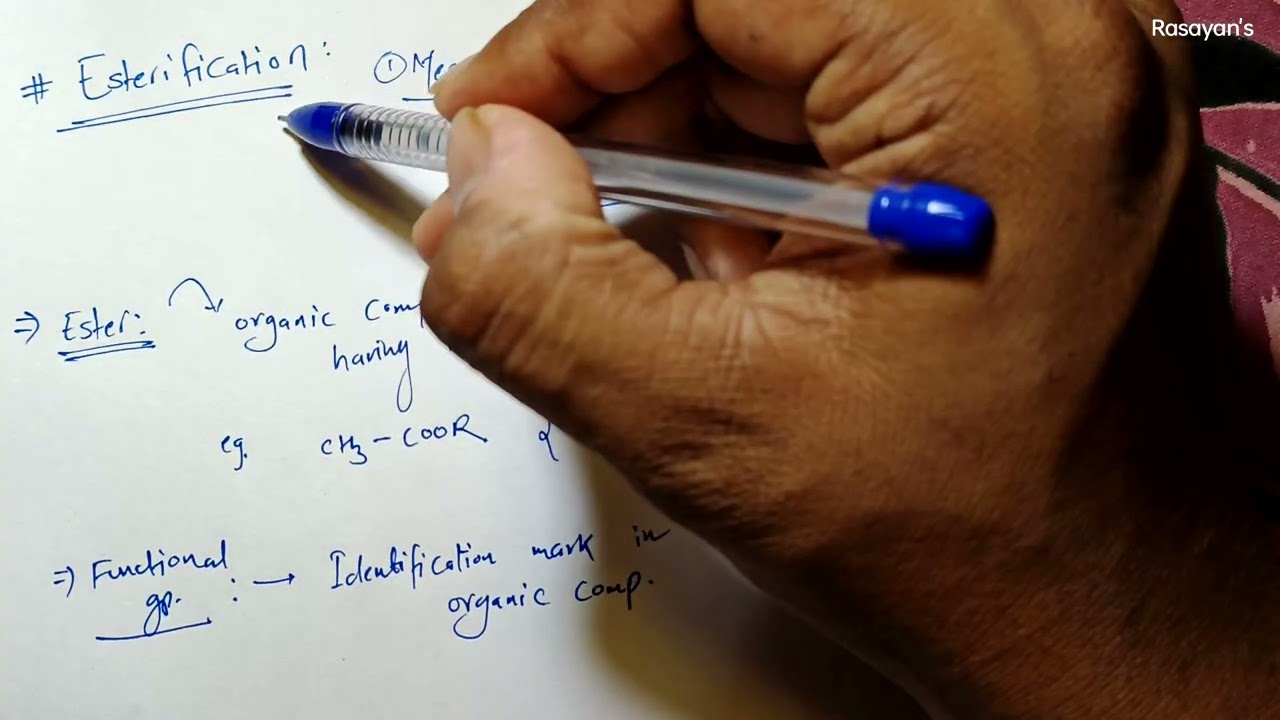 Rasayan's
# Esterification: ①
⇒ Ester: organic
having
eg. CH3-COOR &
⇒ Functional gp. : → Identification mark in
organic comp.